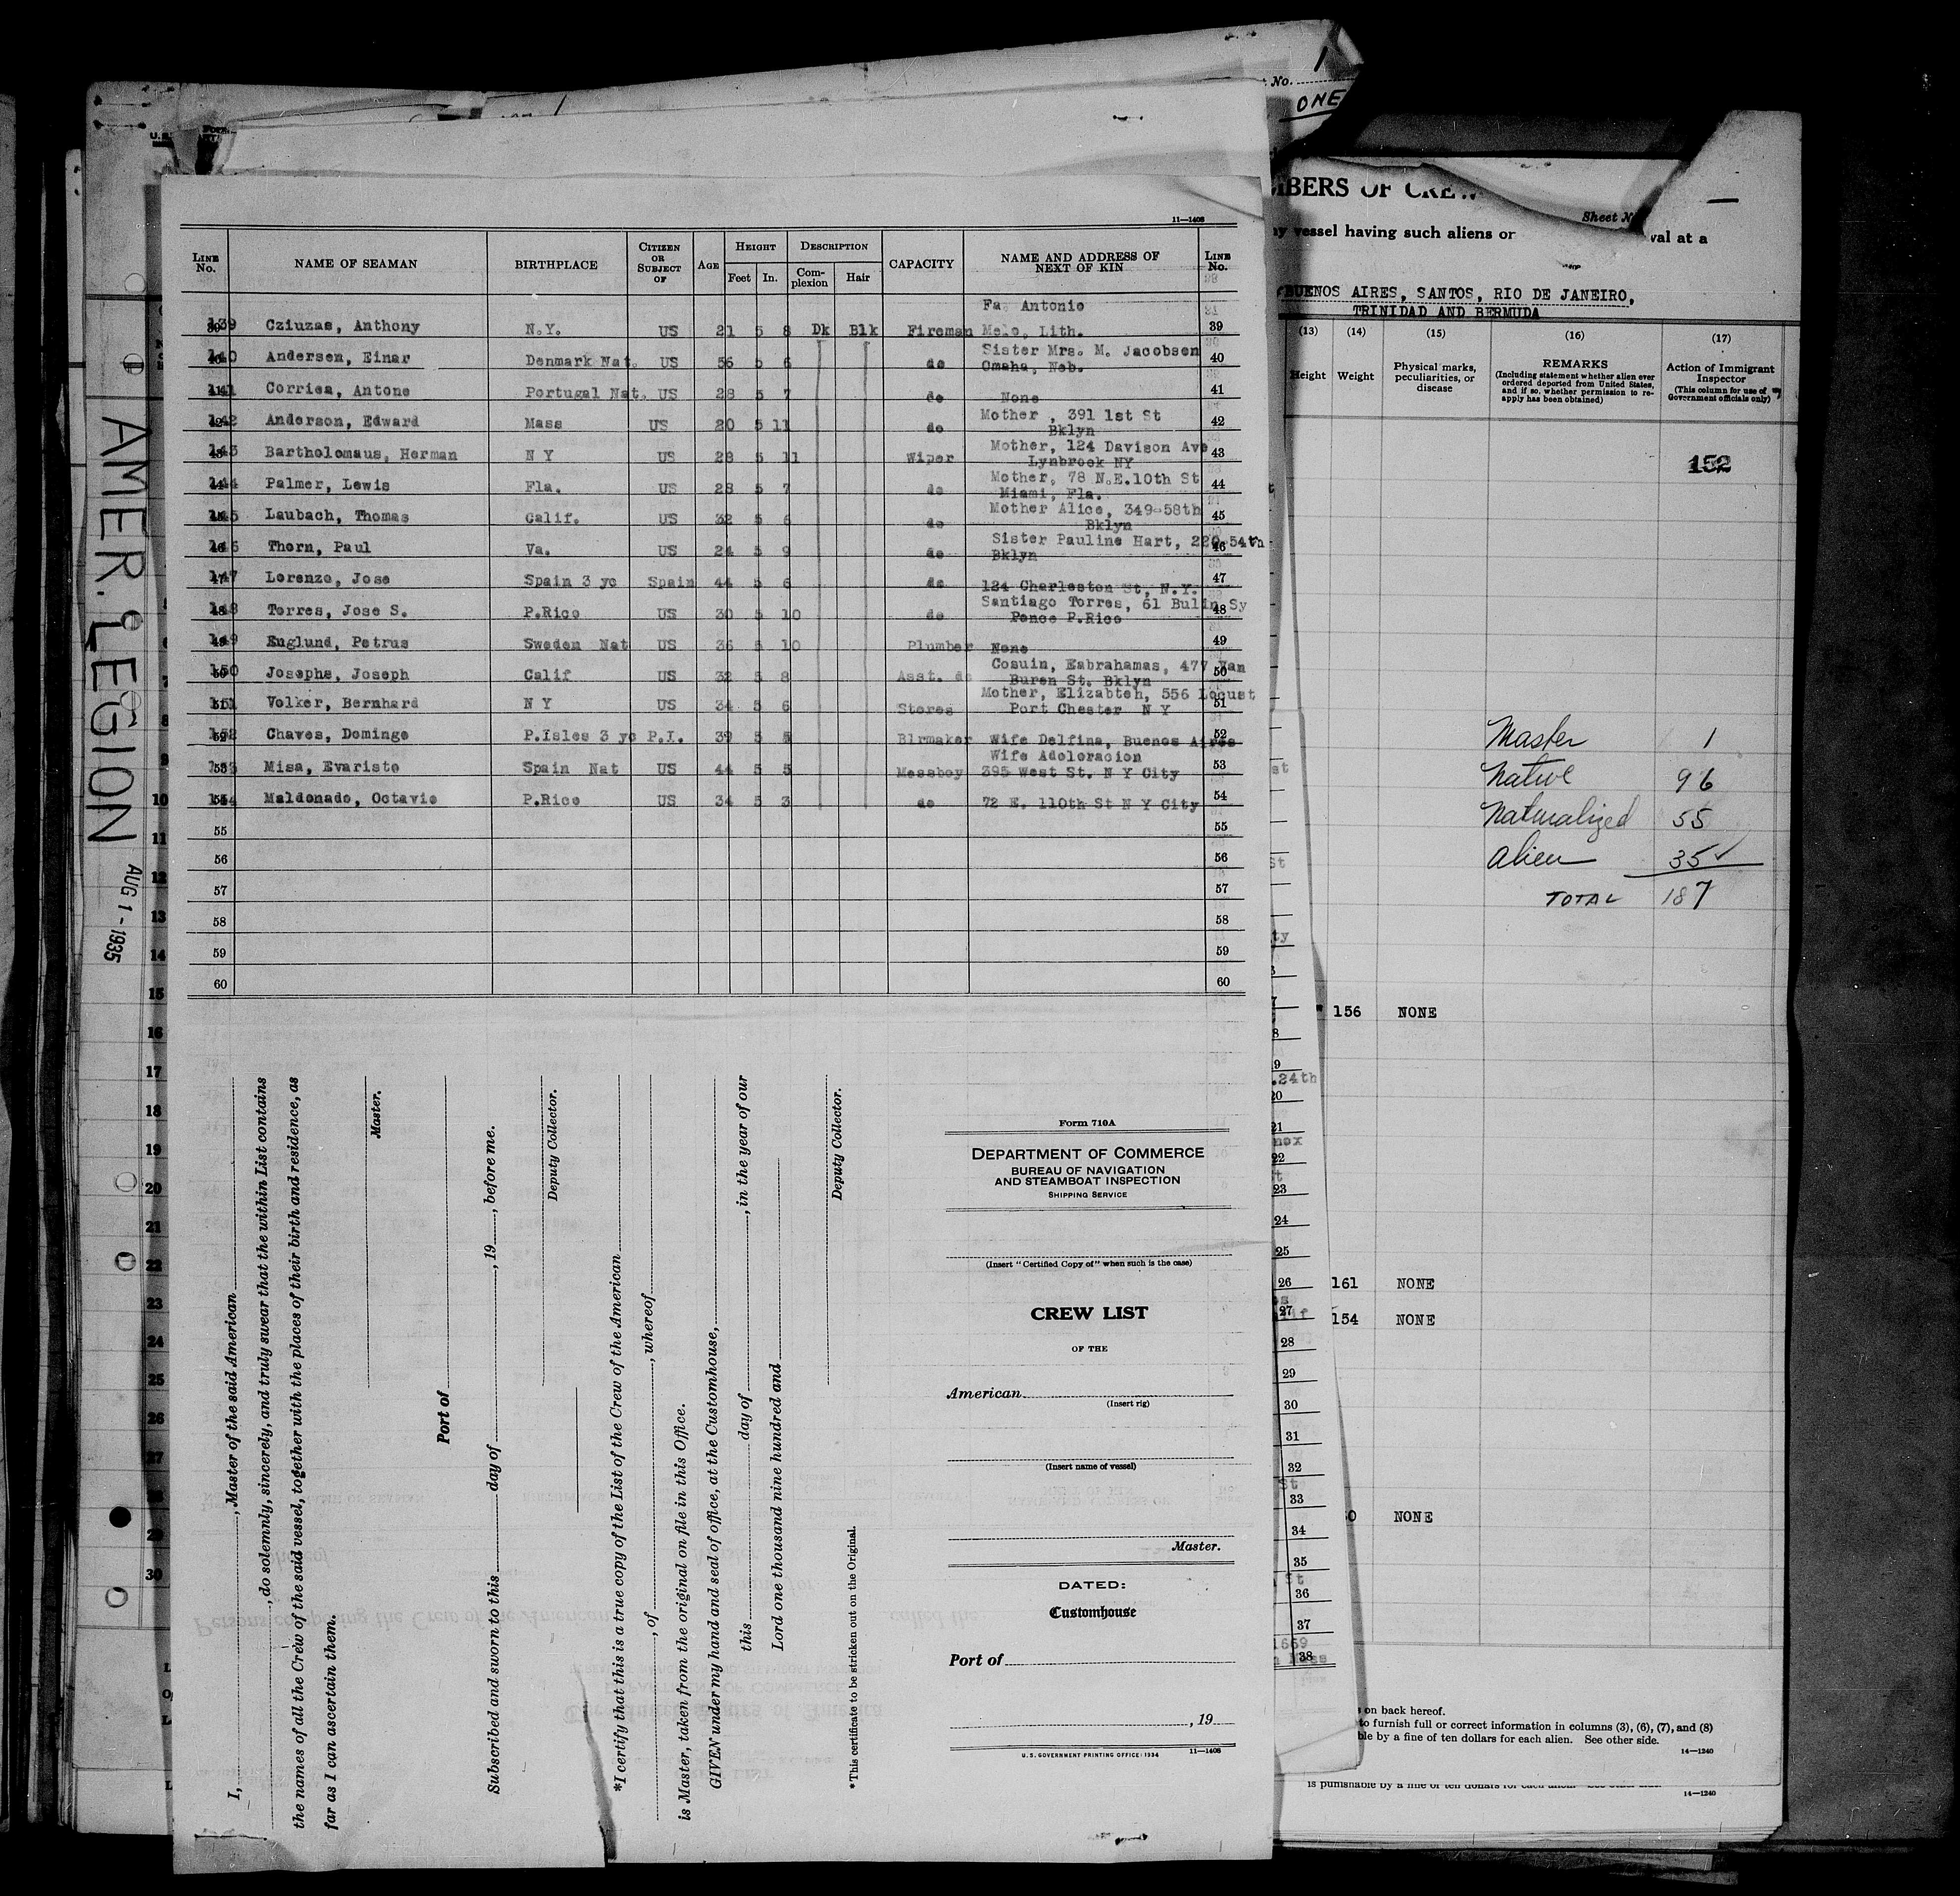 No. 1
ONE
MBERS OF CREW
Sheet N
ny vessel having such aliens or val at a
BUENOS AIRES, SANTOS, RIO DE JANEIRO,
TRINIDAD AND BERMUDA
11—1408
LINE No. NAME OF SEAMAN BIRTHPLACE CITIZEN OR SUBJECT OF AGE HEIGHT Feet In. DESCRIPTION Complexion Hair CAPACITY NAME AND ADDRESS OF NEXT OF KIN LINE No.
Fa Antonio
139 Cziuzas, Anthony N.Y. US 21 5 8 Dk Blk Fireman Melo, Lith. 39
140 Andersen, Einar Denmark Nat. US 56 5 6 do Sister Mrs. M. Jacobsen 40
Omaha, Neb.
141 Corriea, Antone Portugal Nat. US 28 5 7 do None 41
142 Anderson, Edward Mass US 20 5 11 do Mother , 391 1st St 42
Bklyn
143 Bartholomaus, Herman N Y US 28 5 11 Wiper Mother, 124 Davison Ave 43
Lynbrook NY
144 Palmer, Lewis Fla. US 28 5 7 do Mother, 78 N.E.10th St 44
Miami, Fla.
145 Laubach, Thomas Calif. US 32 5 6 do Mother Alice, 349-58th 45
Bklyn
146 Thorn, Paul Va. US 24 5 9 do Sister Pauline Hart, 220-54th 46
Bklyn
147 Lorenzo, Jose Spain 3 yc Spain 44 5 6 do 124 Charleston St, N.Y. 47
148 Torres, Jose S. P.Rico US 30 5 10 do Santiago Torres, 61 Bulin Sy 48
Ponce P.Rico
149 Englund, Petrus Sweden Nat US 36 5 10 Plumber None 49
150 Josephs, Joseph Calif US 32 5 8 Asst. do Cosuin, Eabrahamas, 477 Van 50
Buren St. Bklyn
151 Volker, Bernhard N Y US 34 5 6 Stores Mother, Elizabteh, 556 Locust 51
Port Chester N Y
152 Chaves, Domingo P.Isles 3 yc P.I. 39 5 5 Blrmaker Wife Delfina, Buenos Aires 52
153 Misa, Evaristo Spain Nat US 44 5 5 Messboy Wife Adoloracion 53
395 West St. N Y City
154 Maldonado, Octavio P.Rico US 34 5 3 do 72 E. 110th St N Y City 54
55 55
56 56
57 57
58 58
59 59
60 60
I, , Master of the said American
, do solemnly, sincerely, and truly swear that the within List contains
the names of all the Crew of the said vessel, together with the places of their birth and residence, as
far as I can ascertain them.
Master.
Port of
Subscribed and sworn to this day of , 19 , before me.
Deputy Collector.
*I certify that this is a true copy of the List of the Crew of the American
, of , whereof
is Master, taken from the original on file in this Office.
GIVEN under my hand and seal of office, at the Customhouse,
this day of , in the year of our
Lord one thousand nine hundred and
Deputy Collector.
*This certificate to be stricken out on the Original.
Form 710A
DEPARTMENT OF COMMERCE
BUREAU OF NAVIGATION
AND STEAMBOAT INSPECTION
SHIPPING SERVICE
(Insert "Certified Copy of" when such is the case)
CREW LIST
OF THE
American
(Insert rig)
(Insert name of vessel)
Master.
DATED:
Customhouse
Port of
, 19
U.S. GOVERNMENT PRINTING OFFICE: 1934 11—1408
AMER. LEGION
AUG 1 - 1935
10
11
12
13
14
15
16
17
18
19
20
21
22
23
24
25
26
27
29
30
(13) (14) (15) (16) (17)
Height Weight Physical marks, peculiarities, or disease
REMARKS
(Including statement whether alien ever ordered deported from United States, and if so, whether permission to re-apply has been obtained)
Action of Immigrant Inspector
(This column for use of Government officials only)
152
Master 1
Native 96
Naturalized 55
Alien 35 ✓
TOTAL 187
156 NONE
.24th
21
22
23
24
25
26 161 NONE
27 154 NONE
28
29
30
31
32
33
34 NONE
35
36
37
1669
38
on back hereof.
to furnish full or correct information in columns (3), (6), (7), and (8)
ble by a fine of ten dollars for each alien. See other side.
14—1240
is punishable by a fine of ten dollars for each alien. See other side.
14—1240